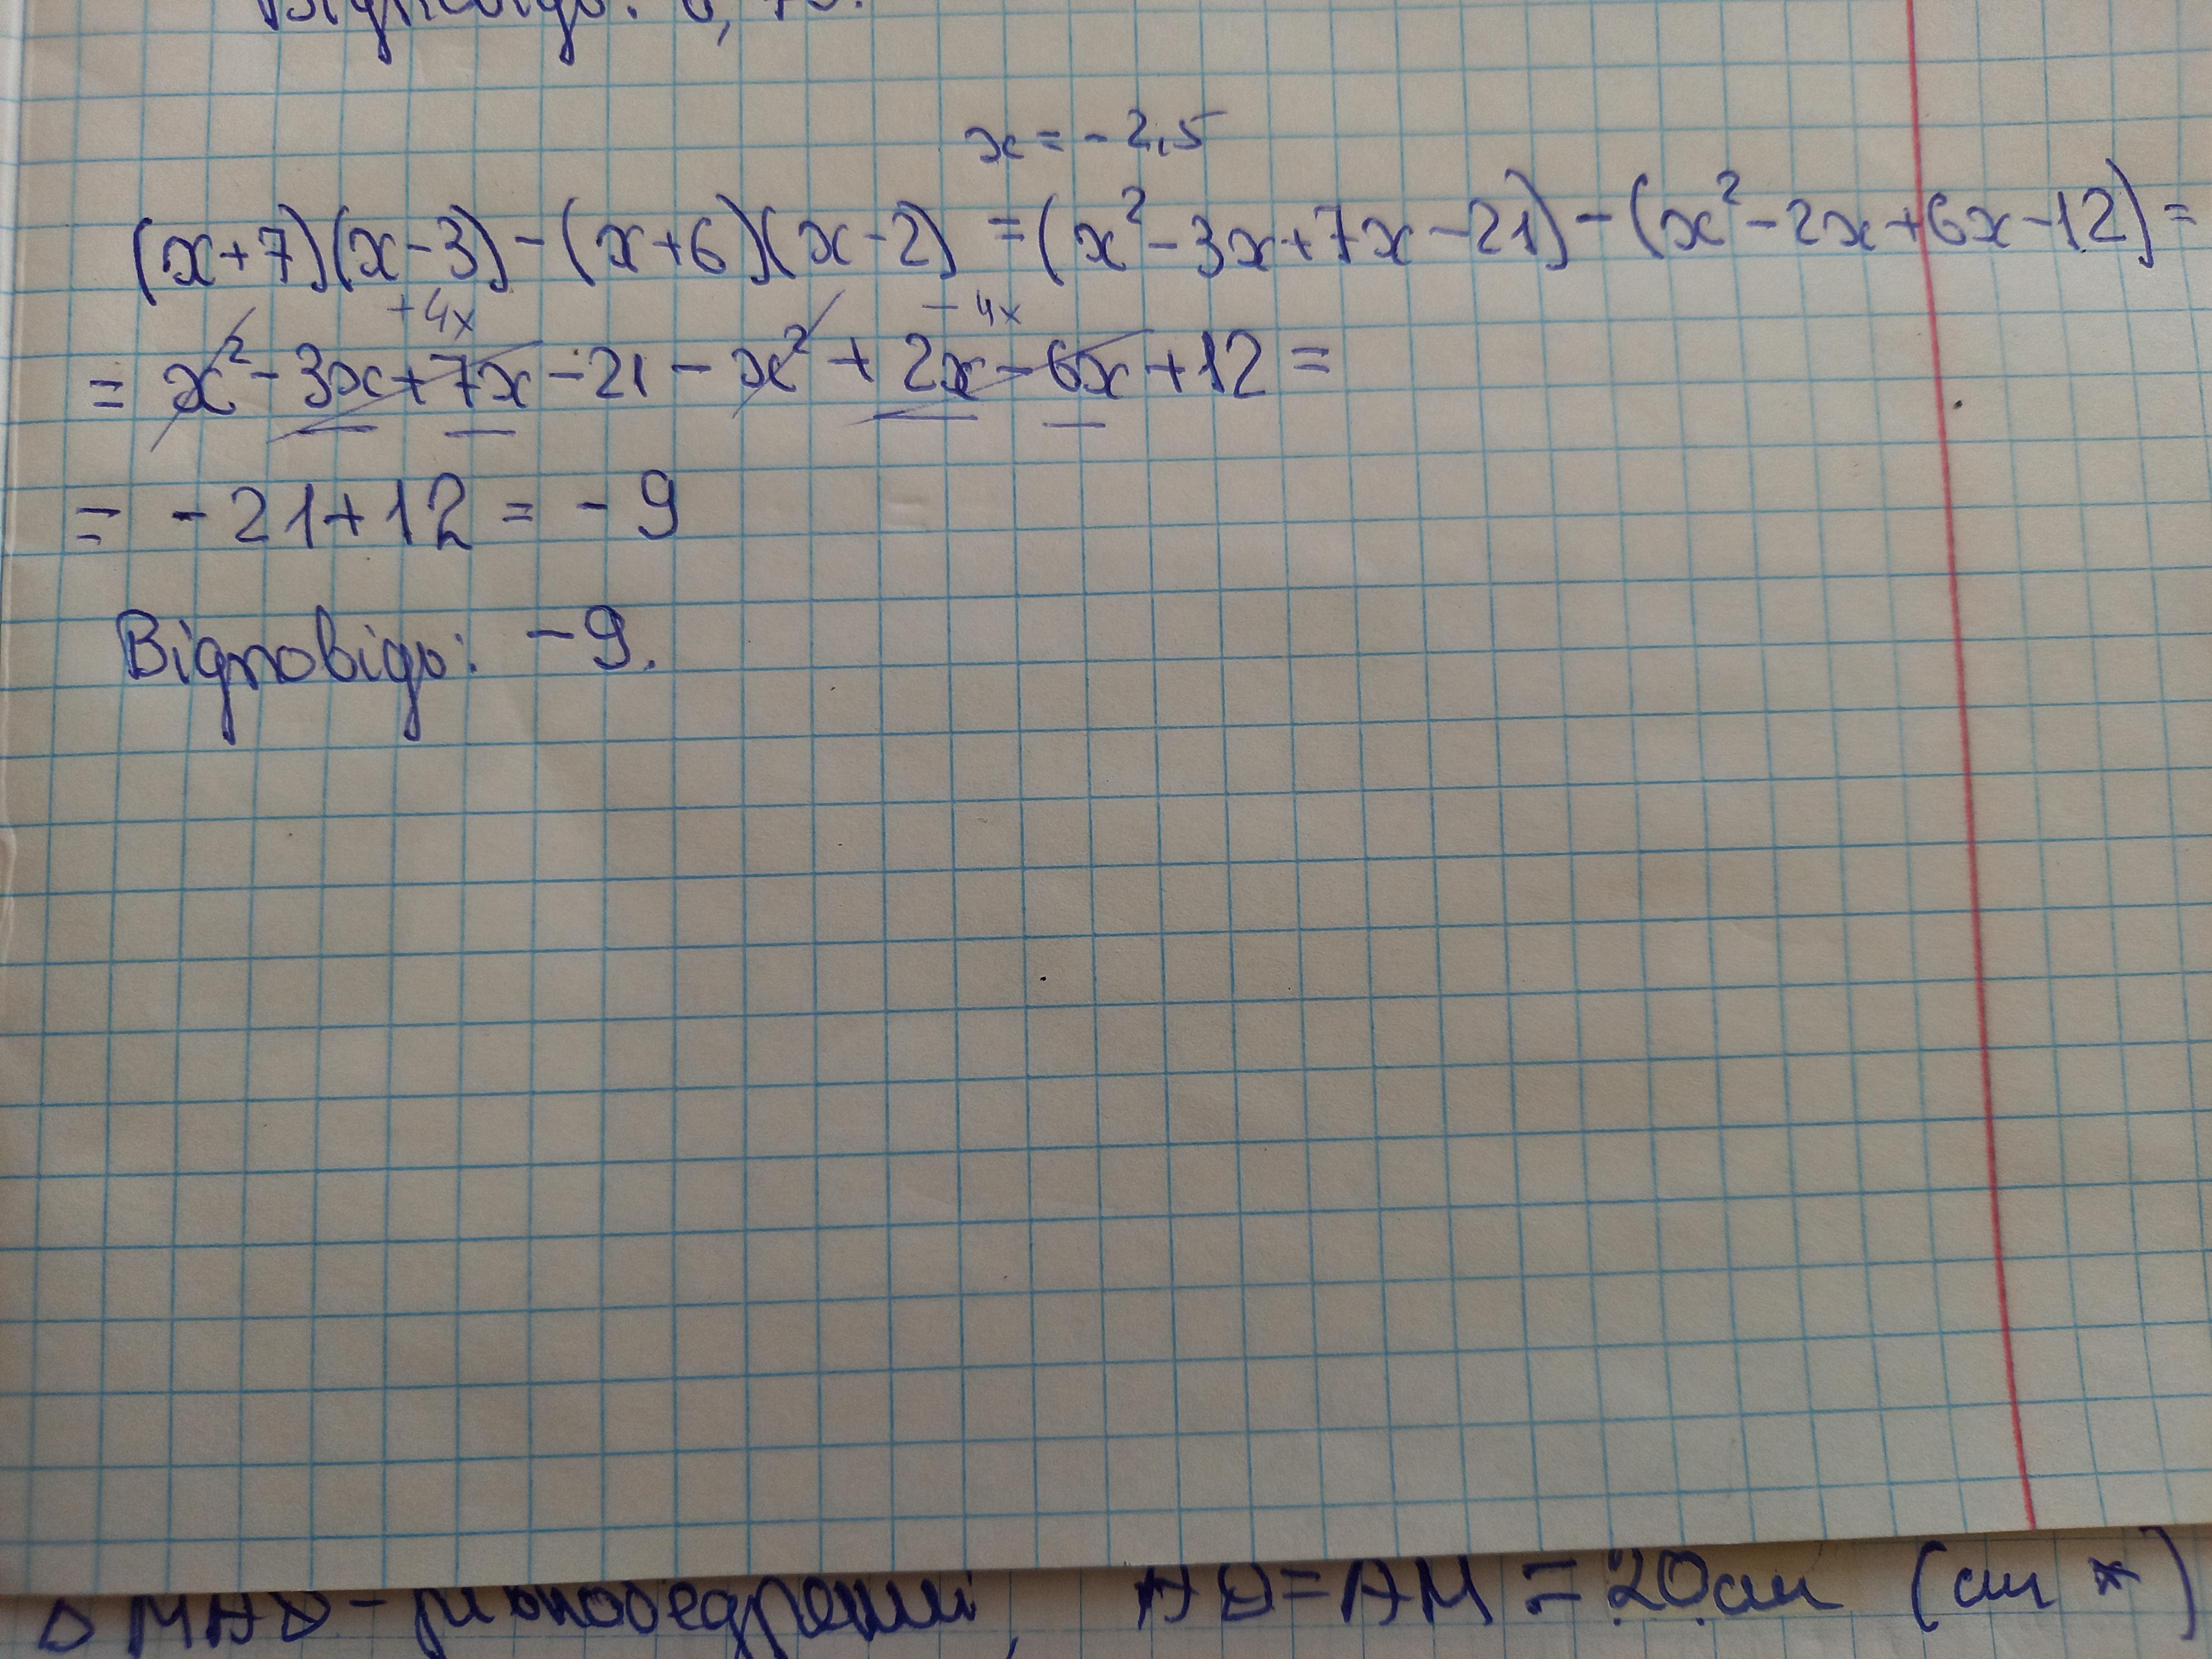 Відповідь:
x = - 2,5
(x+7)(x-3) - (x+6)(x-2) = (x² - 3x + 7x - 21) - (x² - 2x + 6x - 12) =
+4x - 4x
= x² - 3x + 7x - 21 - x² + 2x - 6x + 12 =
= - 21 + 12 = - 9
Відповідь: - 9.
Δ MAD - рівнобедрений, AD = AM = 20 см